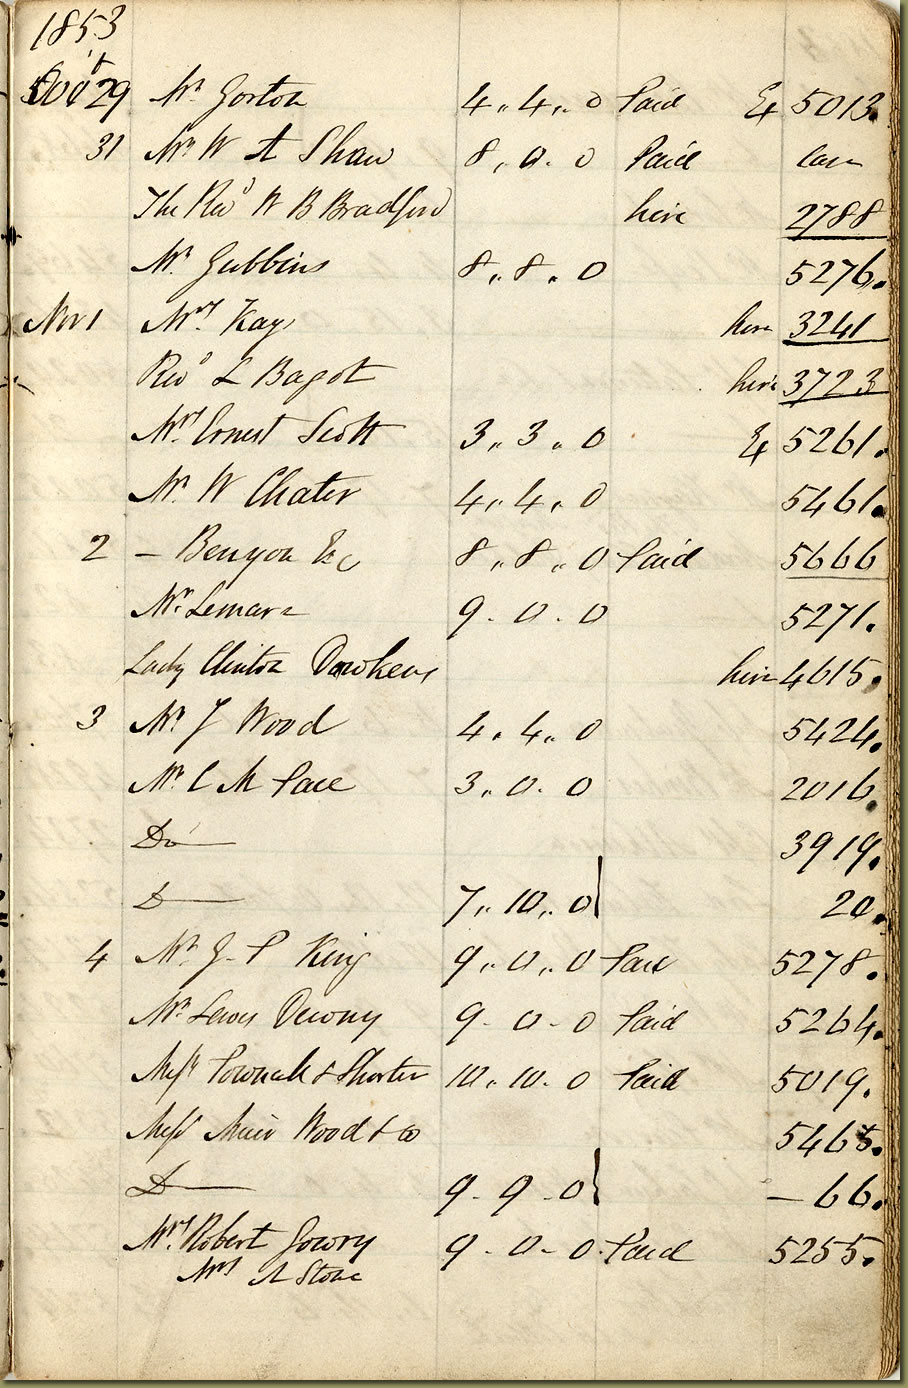 1853
Oct 29 Mr Gorton 4,, 4,, 0 Paid Ex 5013.
31 Mr W A Shaw 8,, 0. 0 Paid
The Revd W B Bradford hire 2788
Mr Gubbins 8,, 8,, 0 5276.
Nov 1 Mrs Kay hire 3241
Revd L Bagot hire 3723
Mrs Ernest Scott 3,, 3,, 0 Ex 5261.
Mr W Chater 4,, 4,, 0 5461.
2 – Benyon Esq 8,, 8,, 0 Paid 5666
Mr Lemare 9. 0. 0 5271.
Lady Clinton Dawkens hire 4615.
3 Mr J Wood 4,, 4,, 0 5424.
Mr C M Pace 3,, 0. 0 2016.
Do 3919.
D 7,, 10,, 0 20.
4 Mr G. P King 9,, 0,, 0 Paid 5278.
Mr Lewis 9 - 0 - 0 Paid 5264.
Messrs Pownall & Shorter 10,, 10. 0 Paid 5019.
Messrs Muir Wood & Co 5465.
D 9 - 9 - 0 – 66.
Mrs Robert Gowry 9 - 0 - 0 Paid 5255.
Mrs A Stone